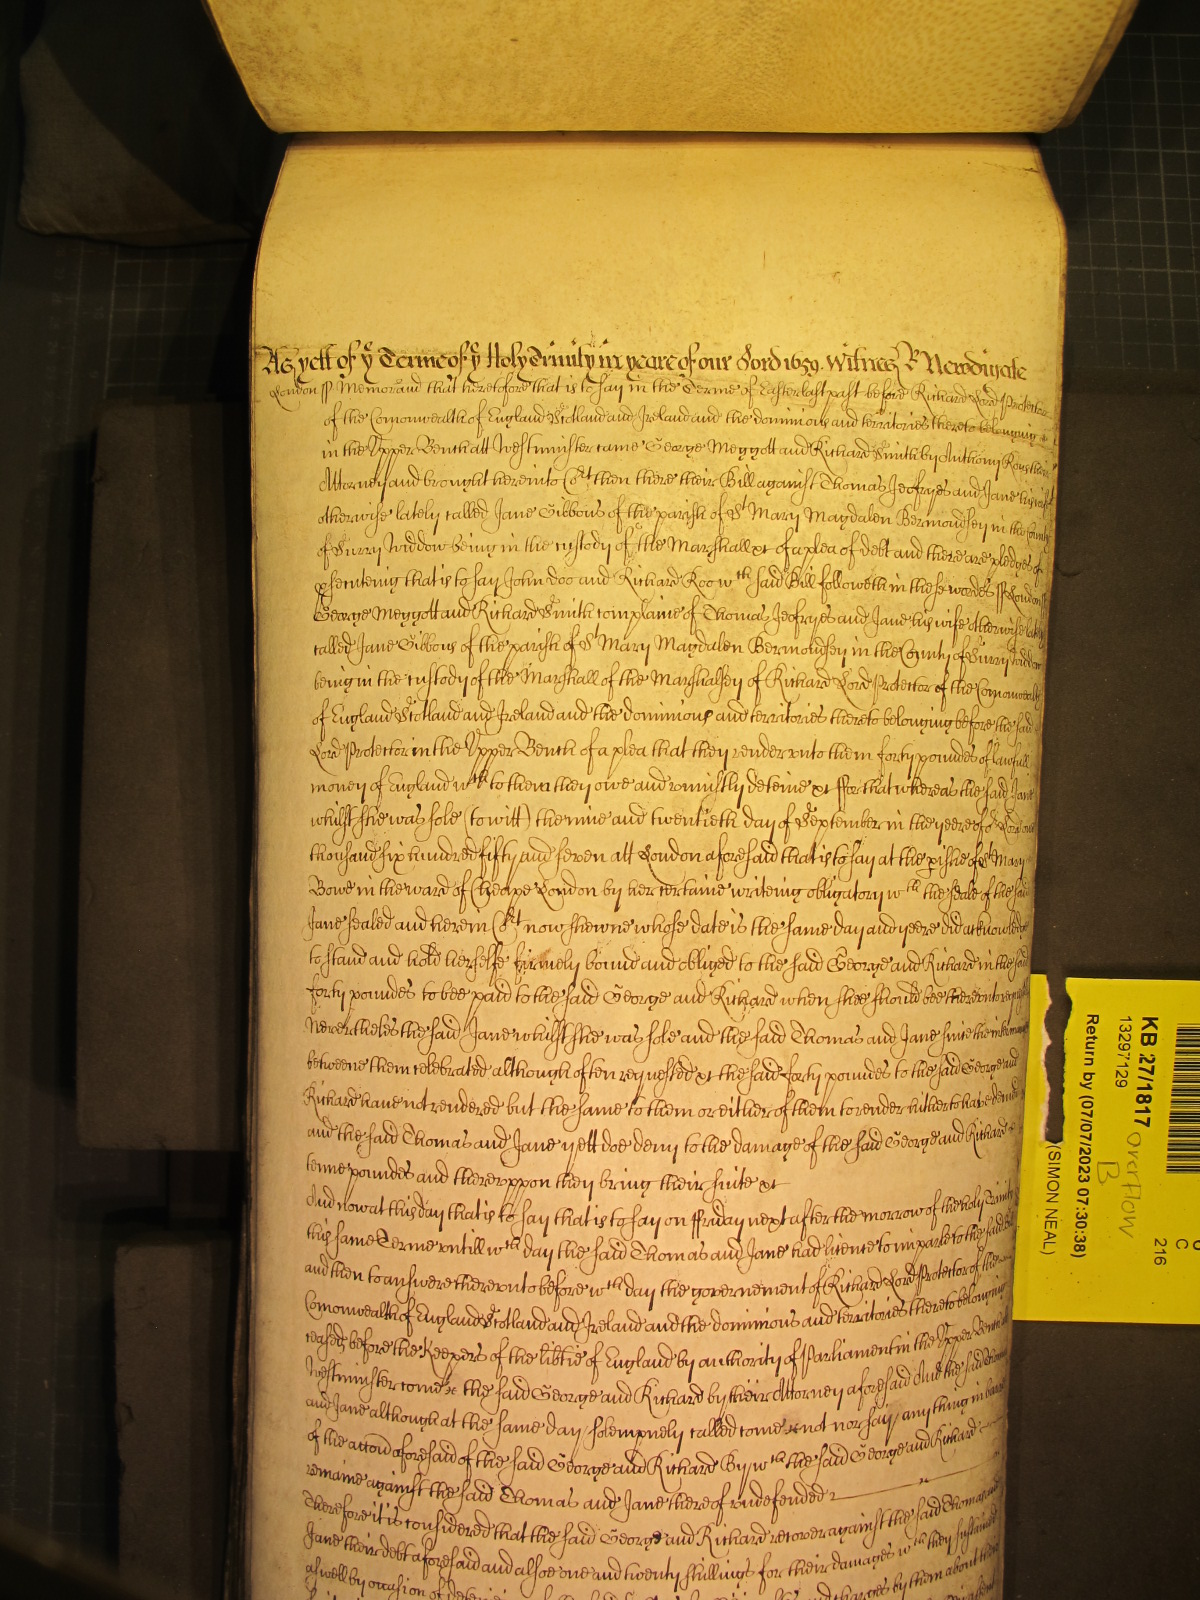 As yett of ye Terme of ye Holy Trinity in yeare of our Lord 1659. Witnes R Newdigate
London ss Memorand that heretofore that is to say in the Terme of Easter last past before Richard Lord Protector
of the Comonwealth of England Scotland and Ireland and the dominions and territories thereto belonging
in the Upper Bench att Westminster came George Meggott and Richard Smith by Anthony
Attorney and brought here into Cort then there their Bill against Thomas Jeofryes and Jane his wife
otherwise lately called Jane Gibbons of the parish of St Mary Magdalen Bermondsey in the County
of Surry Widdow being in the custody of the Marshall &c of a plea of debt and there are pledges of
psecuteing that is to say John Doo and Richard Roo wth said Bill followeth in these wordes ss London ss
George Meggott and Richard Smith complaine of Thomas Jeofryes and Jane his wife otherwise lately
called Jane Gibbons of the parish of St Mary Magdalen Bermondsey in the County of Surry Widdow
being in the custody of the Marshall of the Marshalsey of Richard Lord Protector of the Comonwealth
of England Scotland and Ireland and the dominions and territories thereto belonging before the said
Lord Protector in the Upper Bench of a plea that they render unto them forty poundes of lawfull
money of England wch to them they owe and uniustly deteine &c ffor that whereas the said Jane
whilst she was sole (to witt) the nine and twentieth day of September in the yeere of or Lord one
thousand six hundred fifty and seven att London aforesaid that is to say at the pishe of St Mary
Bowe in the ward of Cheape London by her certaine writeing obligatory wth the seale of the said
Jane sealed and here in Cort now shewne whose date is the same day and yeere did acknowledge
to stand and hold herselfe firmely bound and obliged to the said George and Richard in the said
forty poundes to bee paid to the said George and Richard when shee should bee thereunto
Nevertheles the said Jane whilst she was sole and the said Thomas and Jane since the
betweene them celebrated although often requested &c the said forty poundes to the said George and
Richard have not rendered but the same to them or either of them to render hitherto have denied
and the said Thomas and Jane yett doe deny to the damage of the said George and Richard
tenne poundes and thereuppon they bring their suite &c
And now at this day that is to say that is to say on ffriday next after the morrow of the holy Trinity
this same Terme untill wch day the said Thomas and Jane had licence to imparle to the said Bill
and then to answere thereunto before wch day the governement of Richard Lord Protector of the
Comonwealth of England Scotland and Ireland and the dominions and territories thereto belonging
ceased before the Keepers of the libtie of England by authority of Parliament in the Upper Bench att
Westminster come &c the said George and Richard by their Attorney aforesaid And the said Thomas
and Jane although at the same day solempnely called come not nor say any thing in barre
of the accon aforesaid of the said George and Richard By wch the said George and Richard
remaine against the said Thomas and Jane thereof undefended
Therefore it is considered that the said George and Richard recover against the said Thomas and
Jane their debt aforesaid and alsoe one and twenty shillings for their damages wch they sustained
aswell by occasion of and charges by them about their
KB 27/1817
13297129
Return by (07/07/2023 07:30:38)
(SIMON NEAL)
overflow
B
C
216